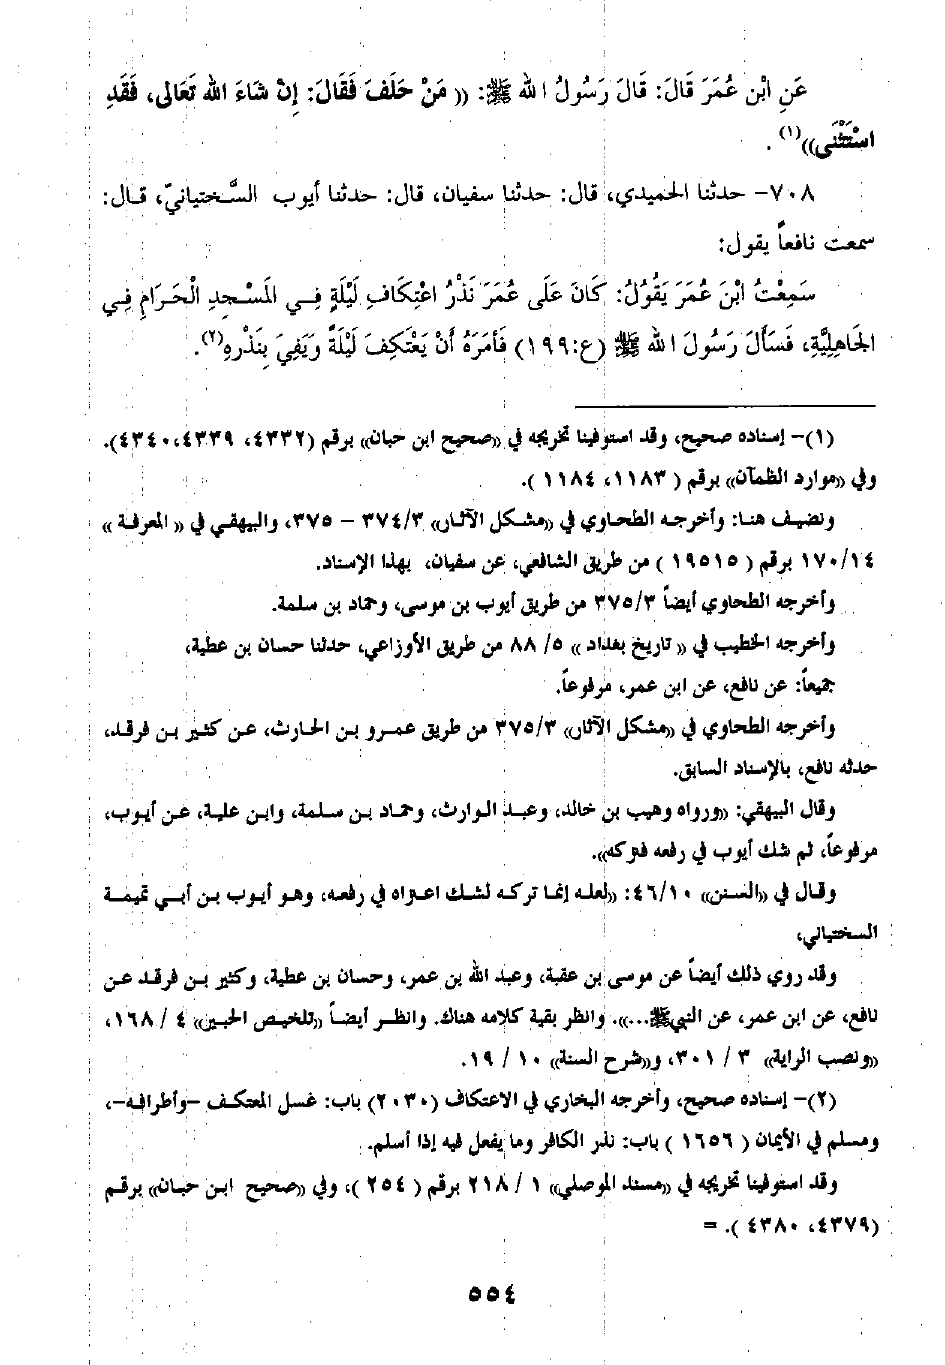 عَنِ ابْنِ عُمَرَ قَالَ: قَالَ رَسُولُ الله ﷺ: (( مَنْ حَلَفَ فَقَالَ: إِنْ شَاءَ الله تَعَالى، فَقَدِ
اسْتَثْنَى))(١) .
٧٠٨- حدثنا الحميدي، قال: حدثنا سفيان، قال: حدثنا أيوب السَّختيانيّ، قال:
سمعت نافعاً يقول:
سَمِعْتُ ابْنَ عُمَرَ يَقُولُ: كَانَ عَلَى عُمَرَ نَذْرُ اعْتِكَافِ لَيْلَةٍ فِي الْمَسْجِدِ الْحَرَامِ فِي
الجَاهِلِيَّةِ، فَسَأَلَ رَسُولَ الله ﷺ (ع:١٩٩) فَأَمَرَهُ أَنْ يَعْتَكِفَ لَيْلَةً وَيَفِيَ بِنَذْرِهِ(٢).
(١)- إسناده صحيح، وقد استوفينا تخريجه في ((صحيح ابن حبان)) برقم (٤٣٣٢، ٤٣٣٩،٤٣٤٠).
وفي ((موارد الظمآن)) برقم ( ١١٨٣، ١١٨٤ ).
ونضيف هنا: وأخرجه الطحاوي في ((مشكل الآثار)) ٣٧٤/٣ - ٣٧٥، والبيهقي في (( المعرفة ))
١٧٠/١٤ برقم ( ١٩٥١٥ ) من طريق الشافعي، عن سفيان، بهذا الإسناد.
وأخرجه الطحاوي أيضاً ٣٧٥/٣ من طريق أيوب بن موسى، وحماد بن سلمة.
وأخرجه الخطيب في (( تاريخ بغداد )) ٥/ ٨٨ من طريق الأوزاعي، حدثنا حسان بن عطية،
جميعاً: عن نافع، عن ابن عمر، مرفوعاً.
وأخرجه الطحاوي في ((مشكل الآثار)) ٣٧٥/٣ من طريق عمرو بن الحارث، عن كثير بن فرقد،
حدثه نافع، بالإسناد السابق.
وقال البيهقي: ((ورواه وهيب بن خالد، وعبد الوارث، وحماد بن سلمة، وابن علية، عن أيوب،
مرفوعاً، ثم شك أيوب في رفعه فتركه)).
وقال في ((السنن)) ٤٦/١٠: ((لعله إنما تركه لشك اعتراه في رفعه، وهو أيوب بن أبي تميمة
السختياني،
وقد روي ذلك أيضاً عن موسى بن عقبة، وعبد الله بن عمر، وحسان بن عطية، وكثير بن فرقد عن
نافع، عن ابن عمر، عن النبيﷺ...)). وانظر بقية كلامه هناك. وانظر أيضاً ((تلخيص الحبير)) ٤ / ١٦٨،
((ونصب الراية)) ٣ / ٣٠١، و((شرح السنة)) ١٠ / ١٩.
(٢)- إسناده صحيح، وأخرجه البخاري في الاعتكاف (٢٠٣٠) باب: غسل المعتكف -وأطرافه-،
ومسلم في الأيمان ( ١٦٥٦ ) باب: نذر الكافر وما يفعل فيه إذا أسلم.
وقد استوفينا تخريجه في ((مسند الموصلي)) ١ / ٢١٨ برقم ( ٢٥٤ )، وفي ((صحيح ابن حبان)) برقم
(٤٣٧٩، ٤٣٨٠ ). =
٥٥٤